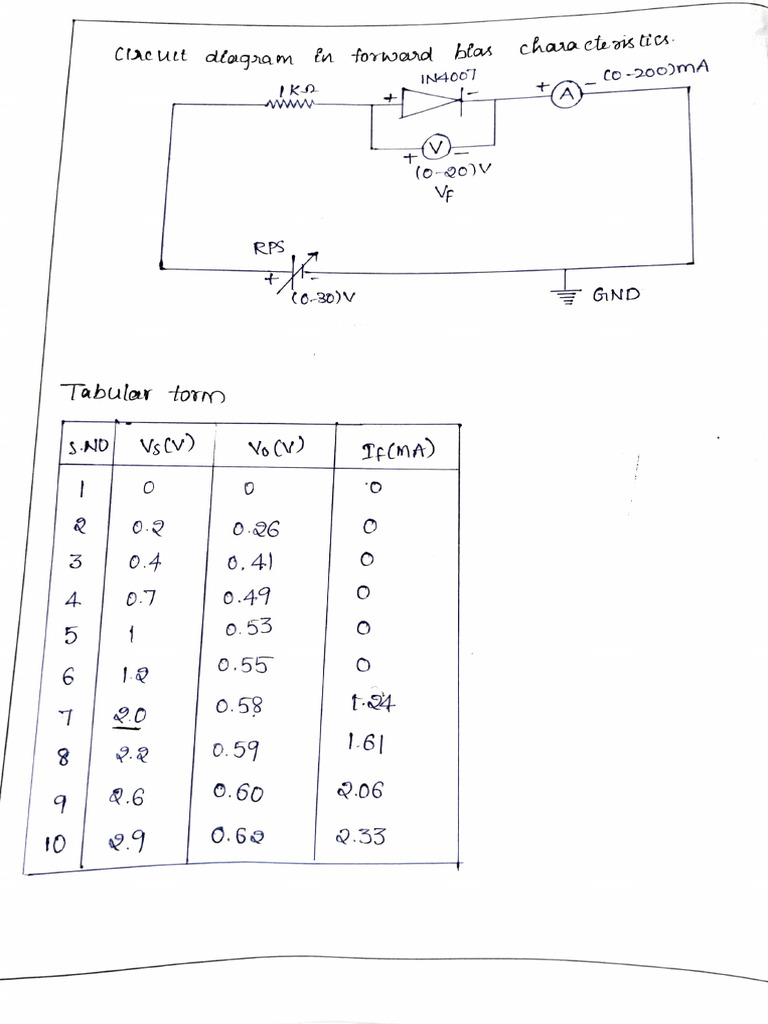 Circuit diagram in forward bias characteristics.
1KΩ
+ IN4007 -
+ A - (0-200)mA
+ V -
(0-20)V
VF
RPS
+ -
(0-30)V
GND
Tabular torm
S.NO VS(V) VO(V) IF(MA)
1 0 0 0
2 0.2 0.26 0
3 0.4 0.41 0
4 0.7 0.49 0
5 1 0.53 0
6 1.2 0.55 0
7 2.0 0.58 1.24
8 2.2 0.59 1.61
9 2.6 0.60 2.06
10 2.9 0.62 2.33